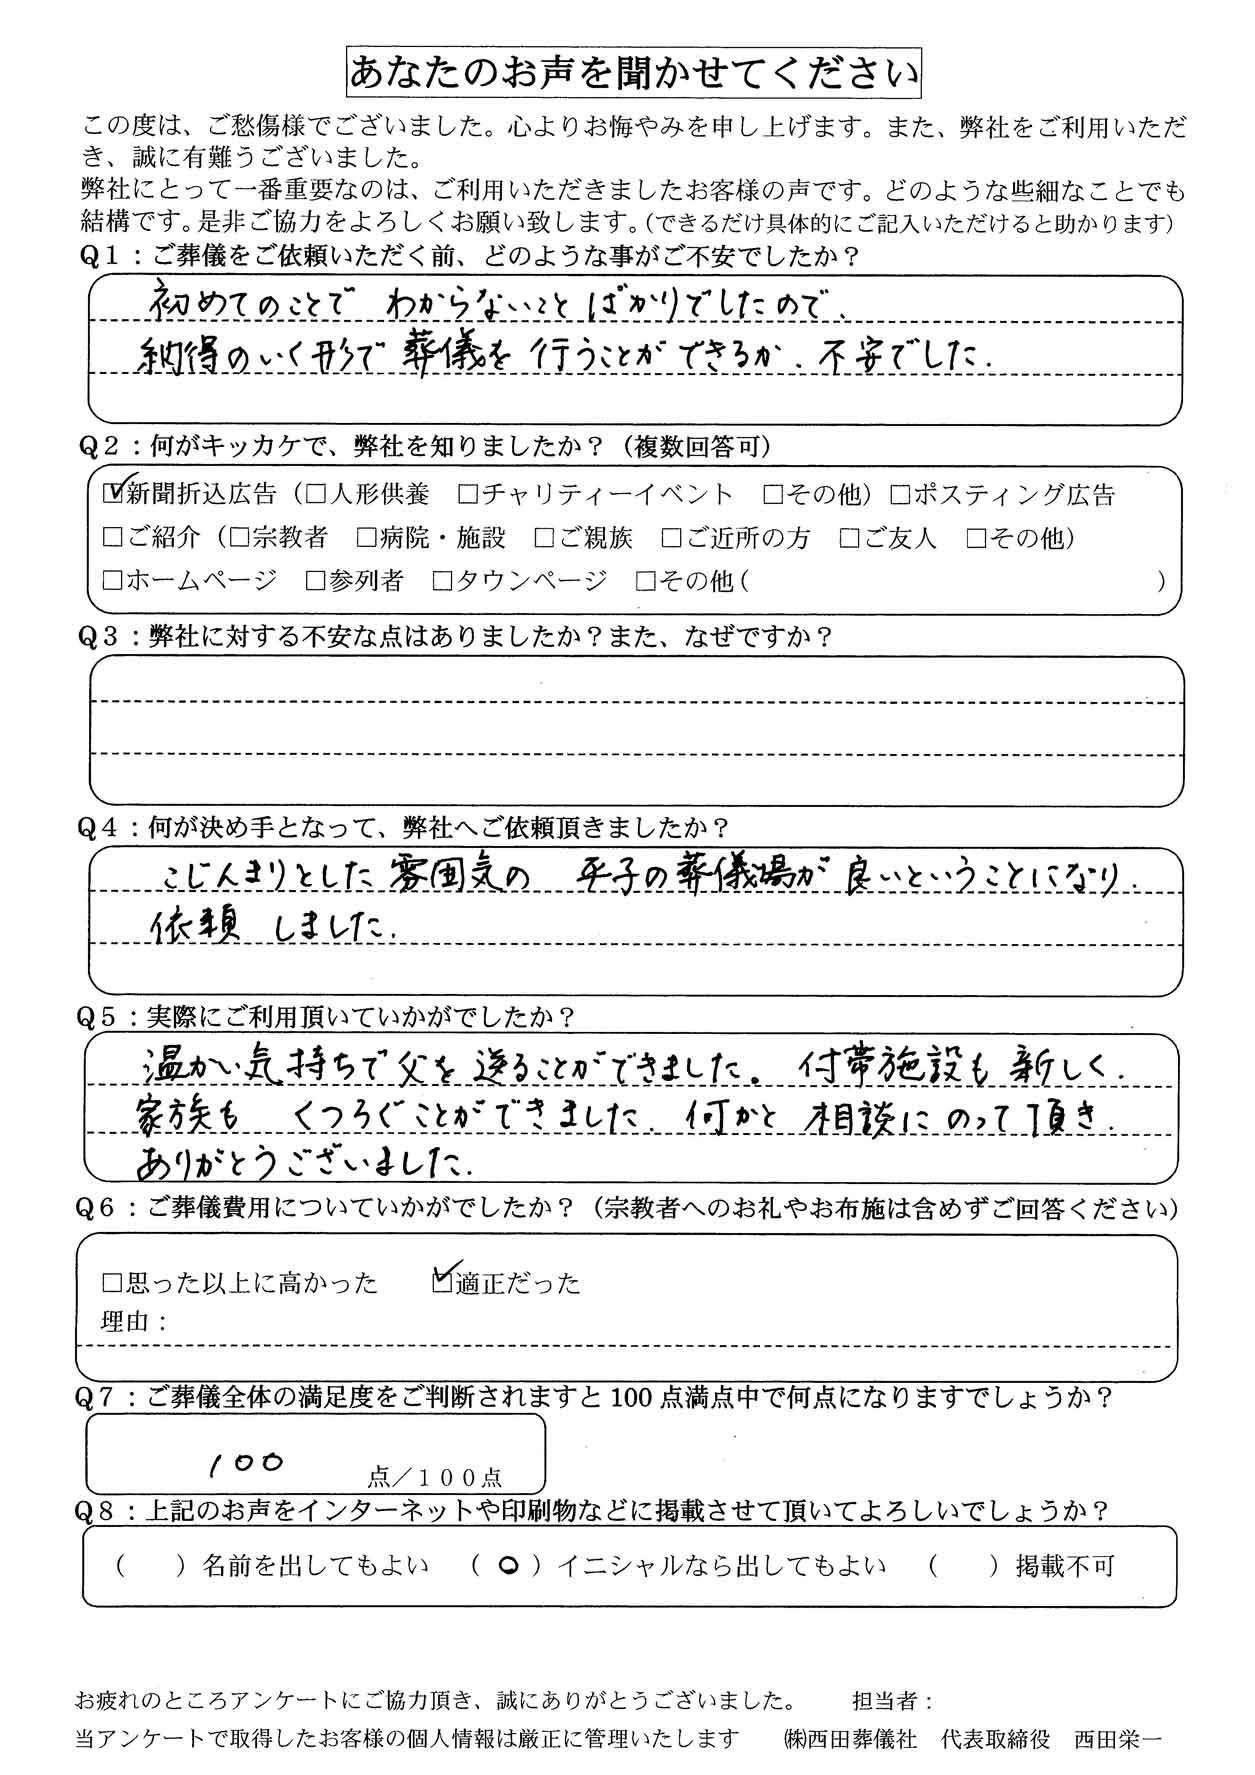 あなたのお声を聞かせてください
この度は、ご愁傷様でございました。心よりお悔やみを申し上げます。また、弊社をご利用いただ
き、誠に有難うございました。
弊社にとって一番重要なのは、ご利用いただきましたお客様の声です。どのような些細なことでも
結構です。是非ご協力をよろしくお願い致します。（できるだけ具体的にご記入いただけると助かります）
Q１：ご葬儀をご依頼いただく前、どのような事がご不安でしたか？
初めてのことで わからないことばかりでしたので、
納得のいく形で葬儀を行うことができるか、不安でした.
Q２：何がキッカケで、弊社を知りましたか？（複数回答可）
☑新聞折込広告（□人形供養 □チャリティーイベント □その他）□ポスティング広告
□ご紹介（□宗教者 □病院・施設 □ご親族 □ご近所の方 □ご友人 □その他）
□ホームページ □参列者 □タウンページ □その他（ ）
Q３：弊社に対する不安な点はありましたか？また、なぜですか？
Q４：何が決め手となって、弊社へご依頼頂きましたか？
こじんまりとした雰囲気の 平子の葬儀場が良いということになり、
依頼しました.
Q５：実際にご利用頂いていかがでしたか？
温かい気持ちで父を送ることができました。付帯施設も新しく、
家族も くつろぐことができました. 何かと相談にのって頂き、
ありがとうございました.
Q６：ご葬儀費用についていかがでしたか？（宗教者へのお礼やお布施は含めずご回答ください）
□思った以上に高かった ☑適正だった
理由：
Q７：ご葬儀全体の満足度をご判断されますと100点満点中で何点になりますでしょうか？
100 点／１００点
Q８：上記のお声をインターネットや印刷物などに掲載させて頂いてよろしいでしょうか？
（ ）名前を出してもよい （○）イニシャルなら出してもよい （ ）掲載不可
お疲れのところアンケートにご協力頂き、誠にありがとうございました。 担当者：
当アンケートで取得したお客様の個人情報は厳正に管理いたします ㈱西田葬儀社 代表取締役 西田栄一